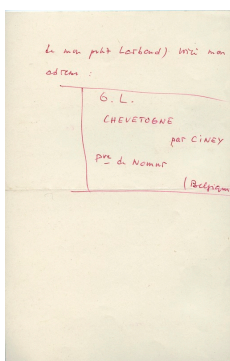 de mon petit Larbaud) voici mon
adresse :
G. L.
CHEVETOGNE
par CINEY
pce de Namur
(Belgique